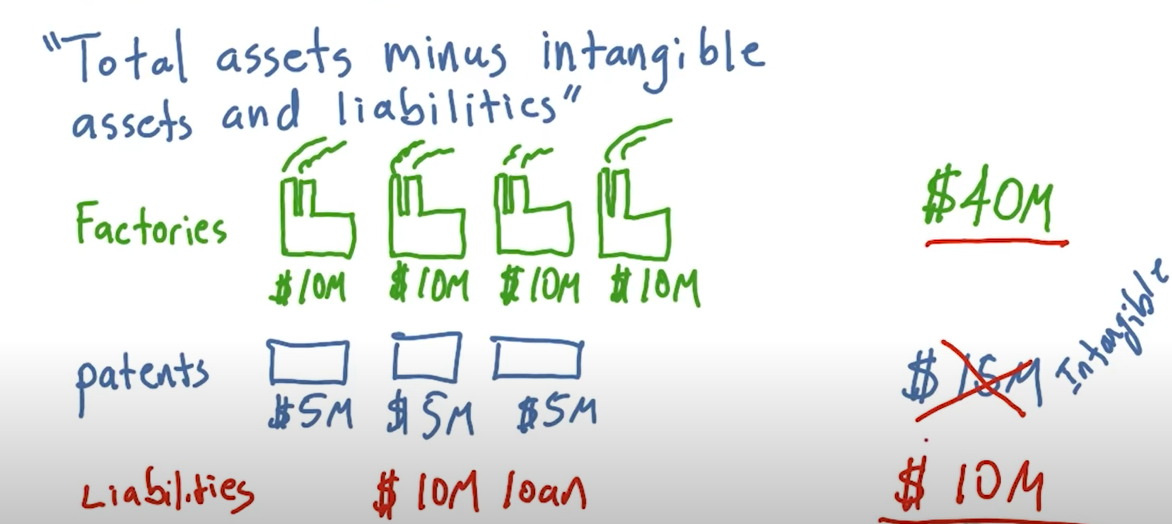 "Total assets minus intangible
assets and liabilities"
Factories
$40M
$10M $10M $10M $10M
patents
$15M Intangible
$5M $5M $5M
Liabilities $10M loan $10M